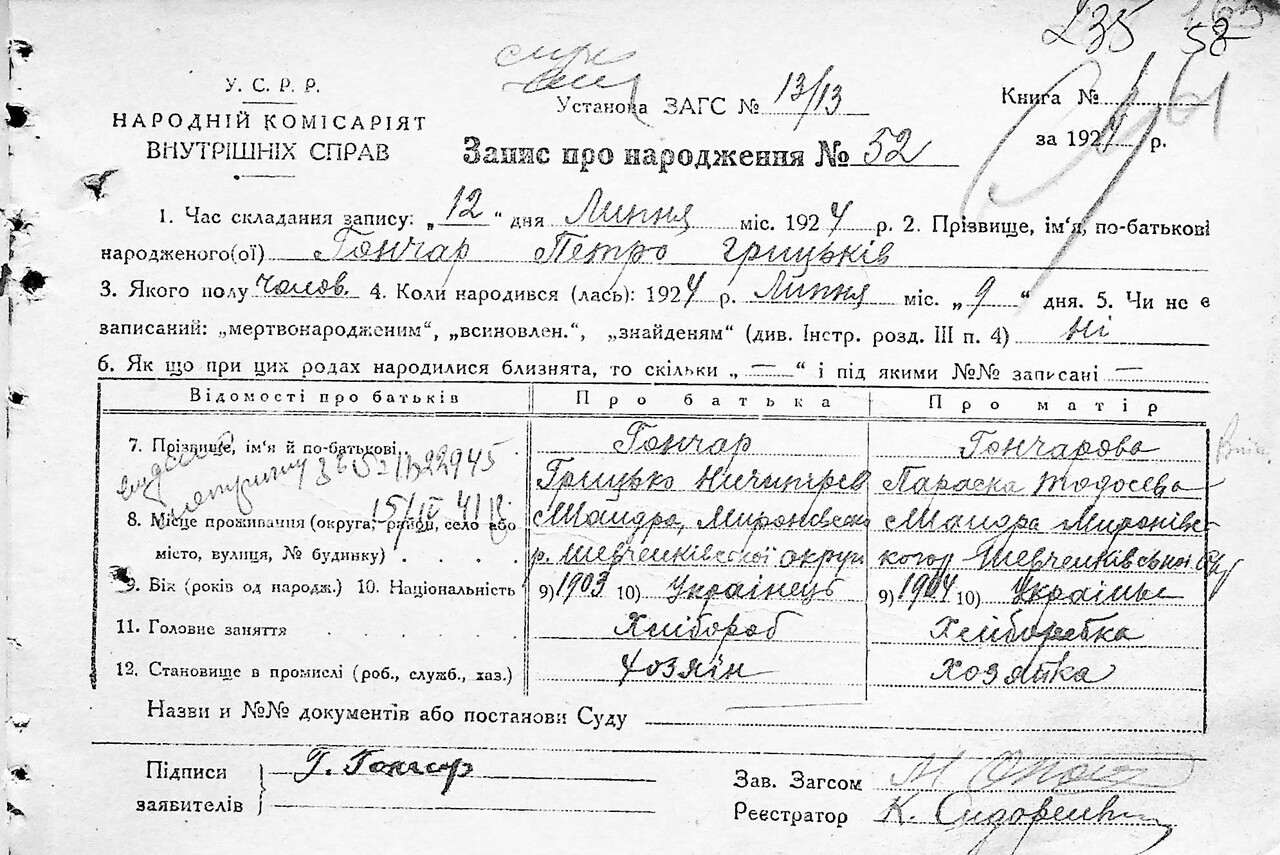 235 58
У. С. Р. Р.
НАРОДНІЙ КОМІСАРІЯТ
ВНУТРІШНІХ СПРАВ
Установа ЗАГС № 13/13
Книга №
за 1924 р.
Запис про народження № 52
1. Час складання запису: „12“ дня Липня міс. 1924 р. 2. Прізвище, ім‘я, по-батькові
народженого(ої) Гончар Петро Грицьків
3. Якого полу чолов. 4. Коли народився (лась): 1924 р. Липня міс. „9“ дня. 5. Чи не є
записаний: „мертвонародженим“, „всиновлен.“, „знайденям“ (див. Інстр. розд. III п. 4) Ні
6. Як що при цих родах народилися близнята, то скільки „—“ і під якими №№ записані —
Відомості про батьків Про батька Про матір
7. Прізвище, ім‘я й по-батькові Гончар Гончарова
Грицько Параска Тодосева
8. Місце проживання (округа, район, село або Шандра, Шандра
місто, вулиця, № будинку) р. Шевченківської округи Шевченківської
9. Вік (років од народж.) 10. Національність 9) 1903 10) Українець 9) 1904 10)
11. Головне заняття Хлібороб Хліборобка
12. Становище в промислі (роб., служб., хаз.) Хозяїн Хозяйка
Назви и №№ документів або постанови Суду
Підписи заявителів Г. Гончар
Зав. Загсом
Реєстратор К. Сидоренко